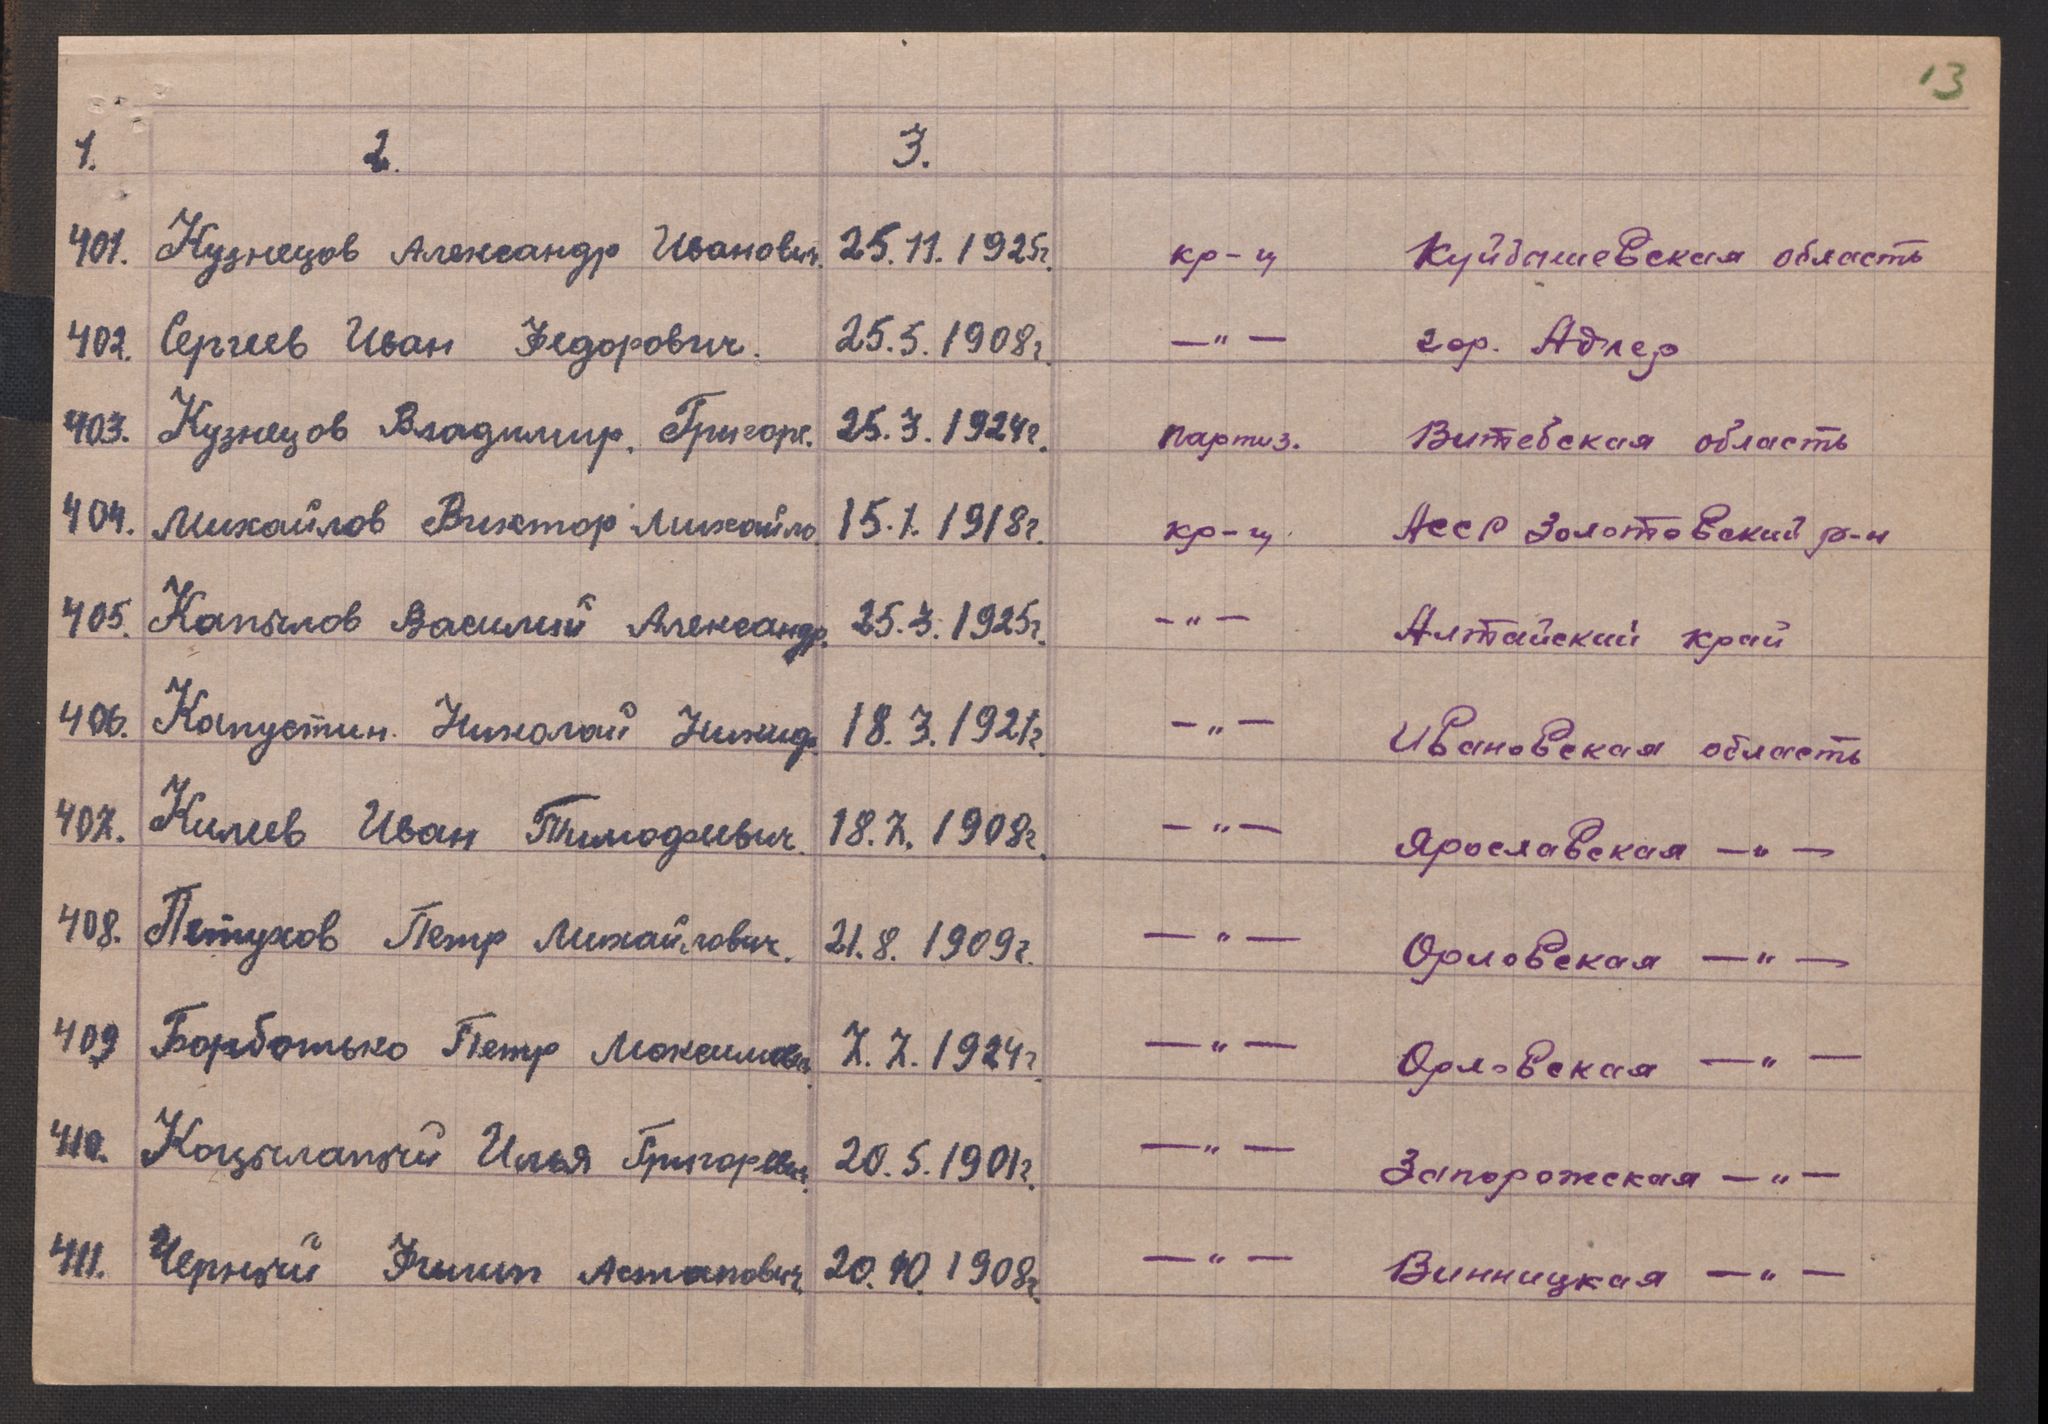 13
1. 2. 3.
401. Кузнецов Александр Иванович. 25.11.1925г. кр-ц Куйбышевская область
402. Сергеев Иван Федорович. 25.5.1908г. —"— гор. Адлер
403. Кузнецов Владимир. Григорг. 25.3.1924г. партиз. Витебская область
404. Михайлов Виктор Михайло. 15.1.1918г. кр-ц АССР Золотовский р-н
405. Капылов Василий Александр. 25.3.1925г. -"- Алтайский край
406. Капустин. Николай Никиф. 18.3.1921г. -"- Ивановская область
407. Килеев Иван Тимофеевич. 18.7.1908г. -"- Ярославская —"—
408. Петухов Петр Михайлович. 21.8.1909г. —"— Орловская —"—
409 Борботько Петр Максимович. 7.7.1924г. —"— Орловская —"—
410. Коцылапый Илья Григоревич. 20.5.1901г. —"— Запорожская —"—
411. Черный Филип Астапович. 20.10.1908г. —"— Винницкая —"—